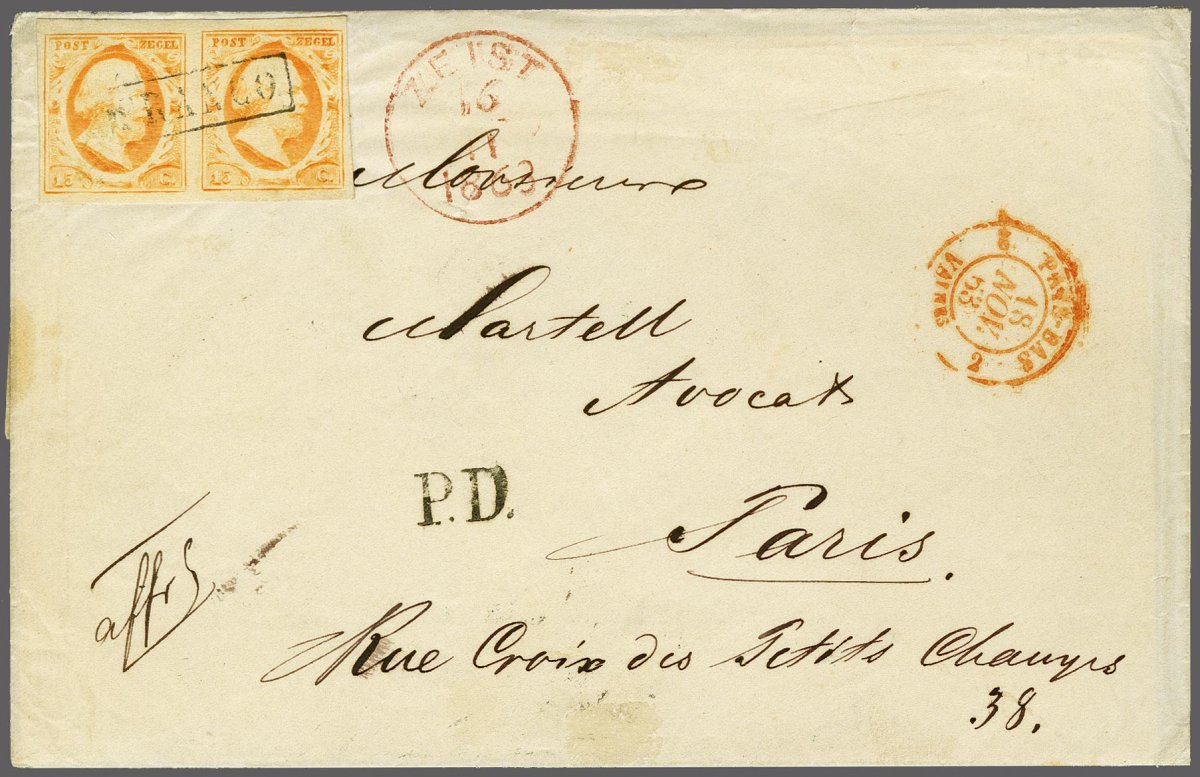 POST ZEGEL POST ZEGEL
FRANCO
15 C. 15 C.
ZEIST
16
11
1853
Monsieur
Martell
Avocat
PAYS-BAS
2 2
18
NOV.
53
P.D.
Paris.
affr
Rue Croix des Petits Champs
38.